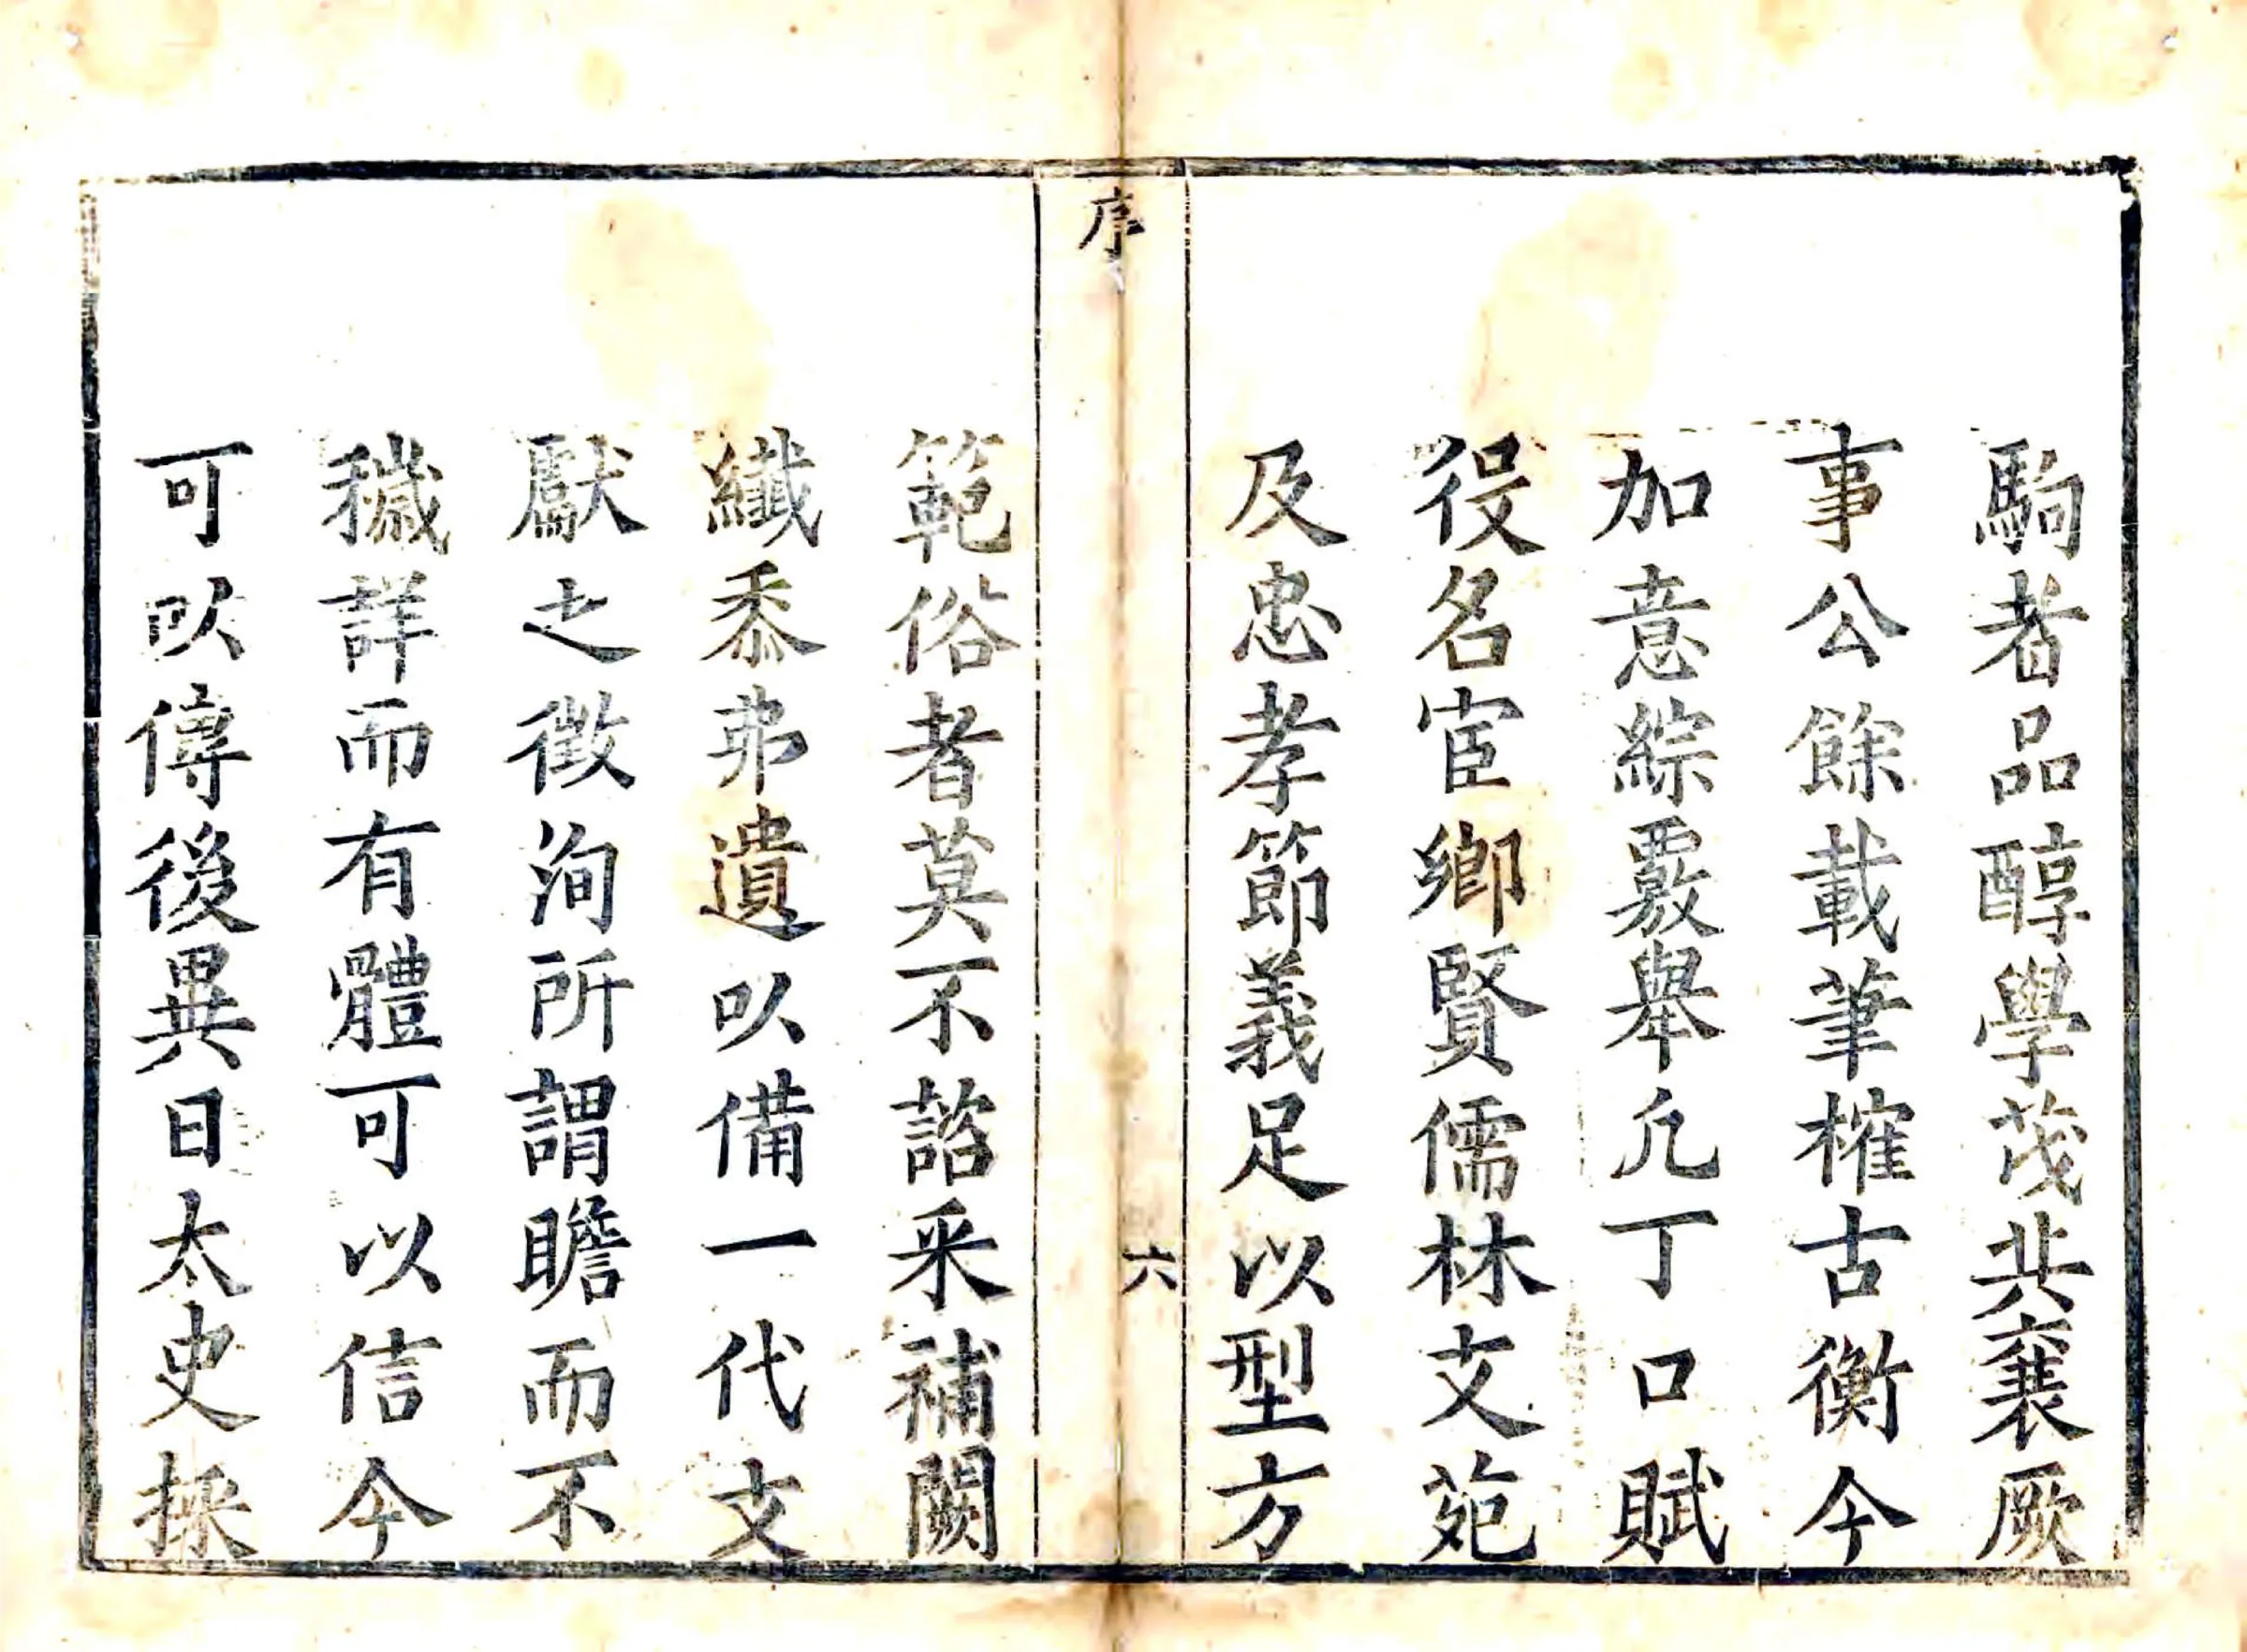 駒者品醇學茂共襄厥
事公餘載筆榷古衡今
加意綜覈舉凢丁口賦
役名宦鄉賢儒林文苑
及忠孝節義足以型方
序
六
範俗者莫不諮采補闕
纖黍弗遺以備一代文
獻之徵洵所謂瞻而不
穢詳而有體可以信今
可以傳後異日太史採